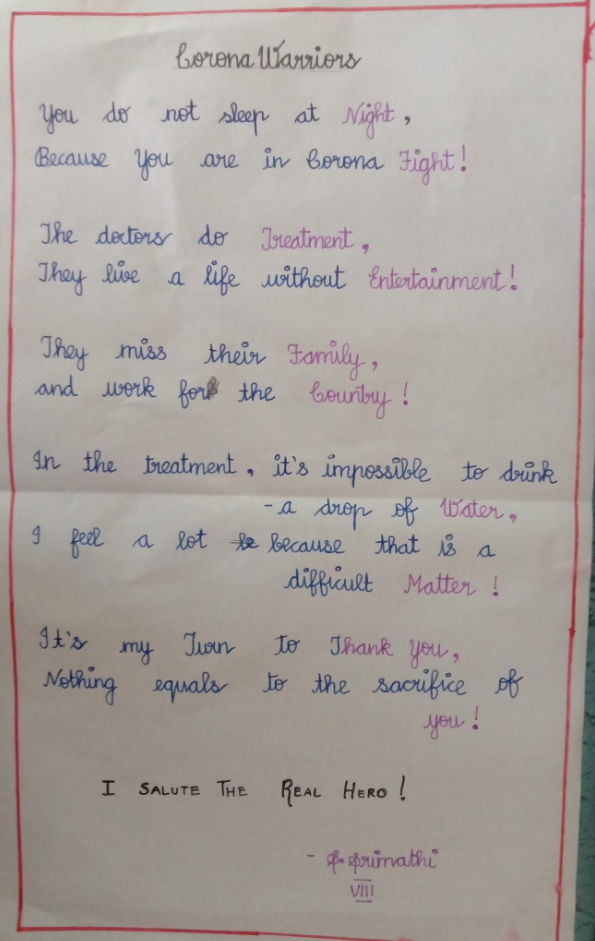 Corona Warriors
You do not sleep at Night,
Because You are in Corona Fight!
The doctors do Treatment,
They live a life without Entertainment!
They miss their Family,
and work for the Country!
In the treatment, it's impossible to drink
- a drop of Water,
I feel a lot because that is a
difficult Matter!
It's my Turn to Thank you,
Nothing equals to the sacrifice of
you!
I SALUTE THE REAL HERO!
- S. Srimathi
VIII